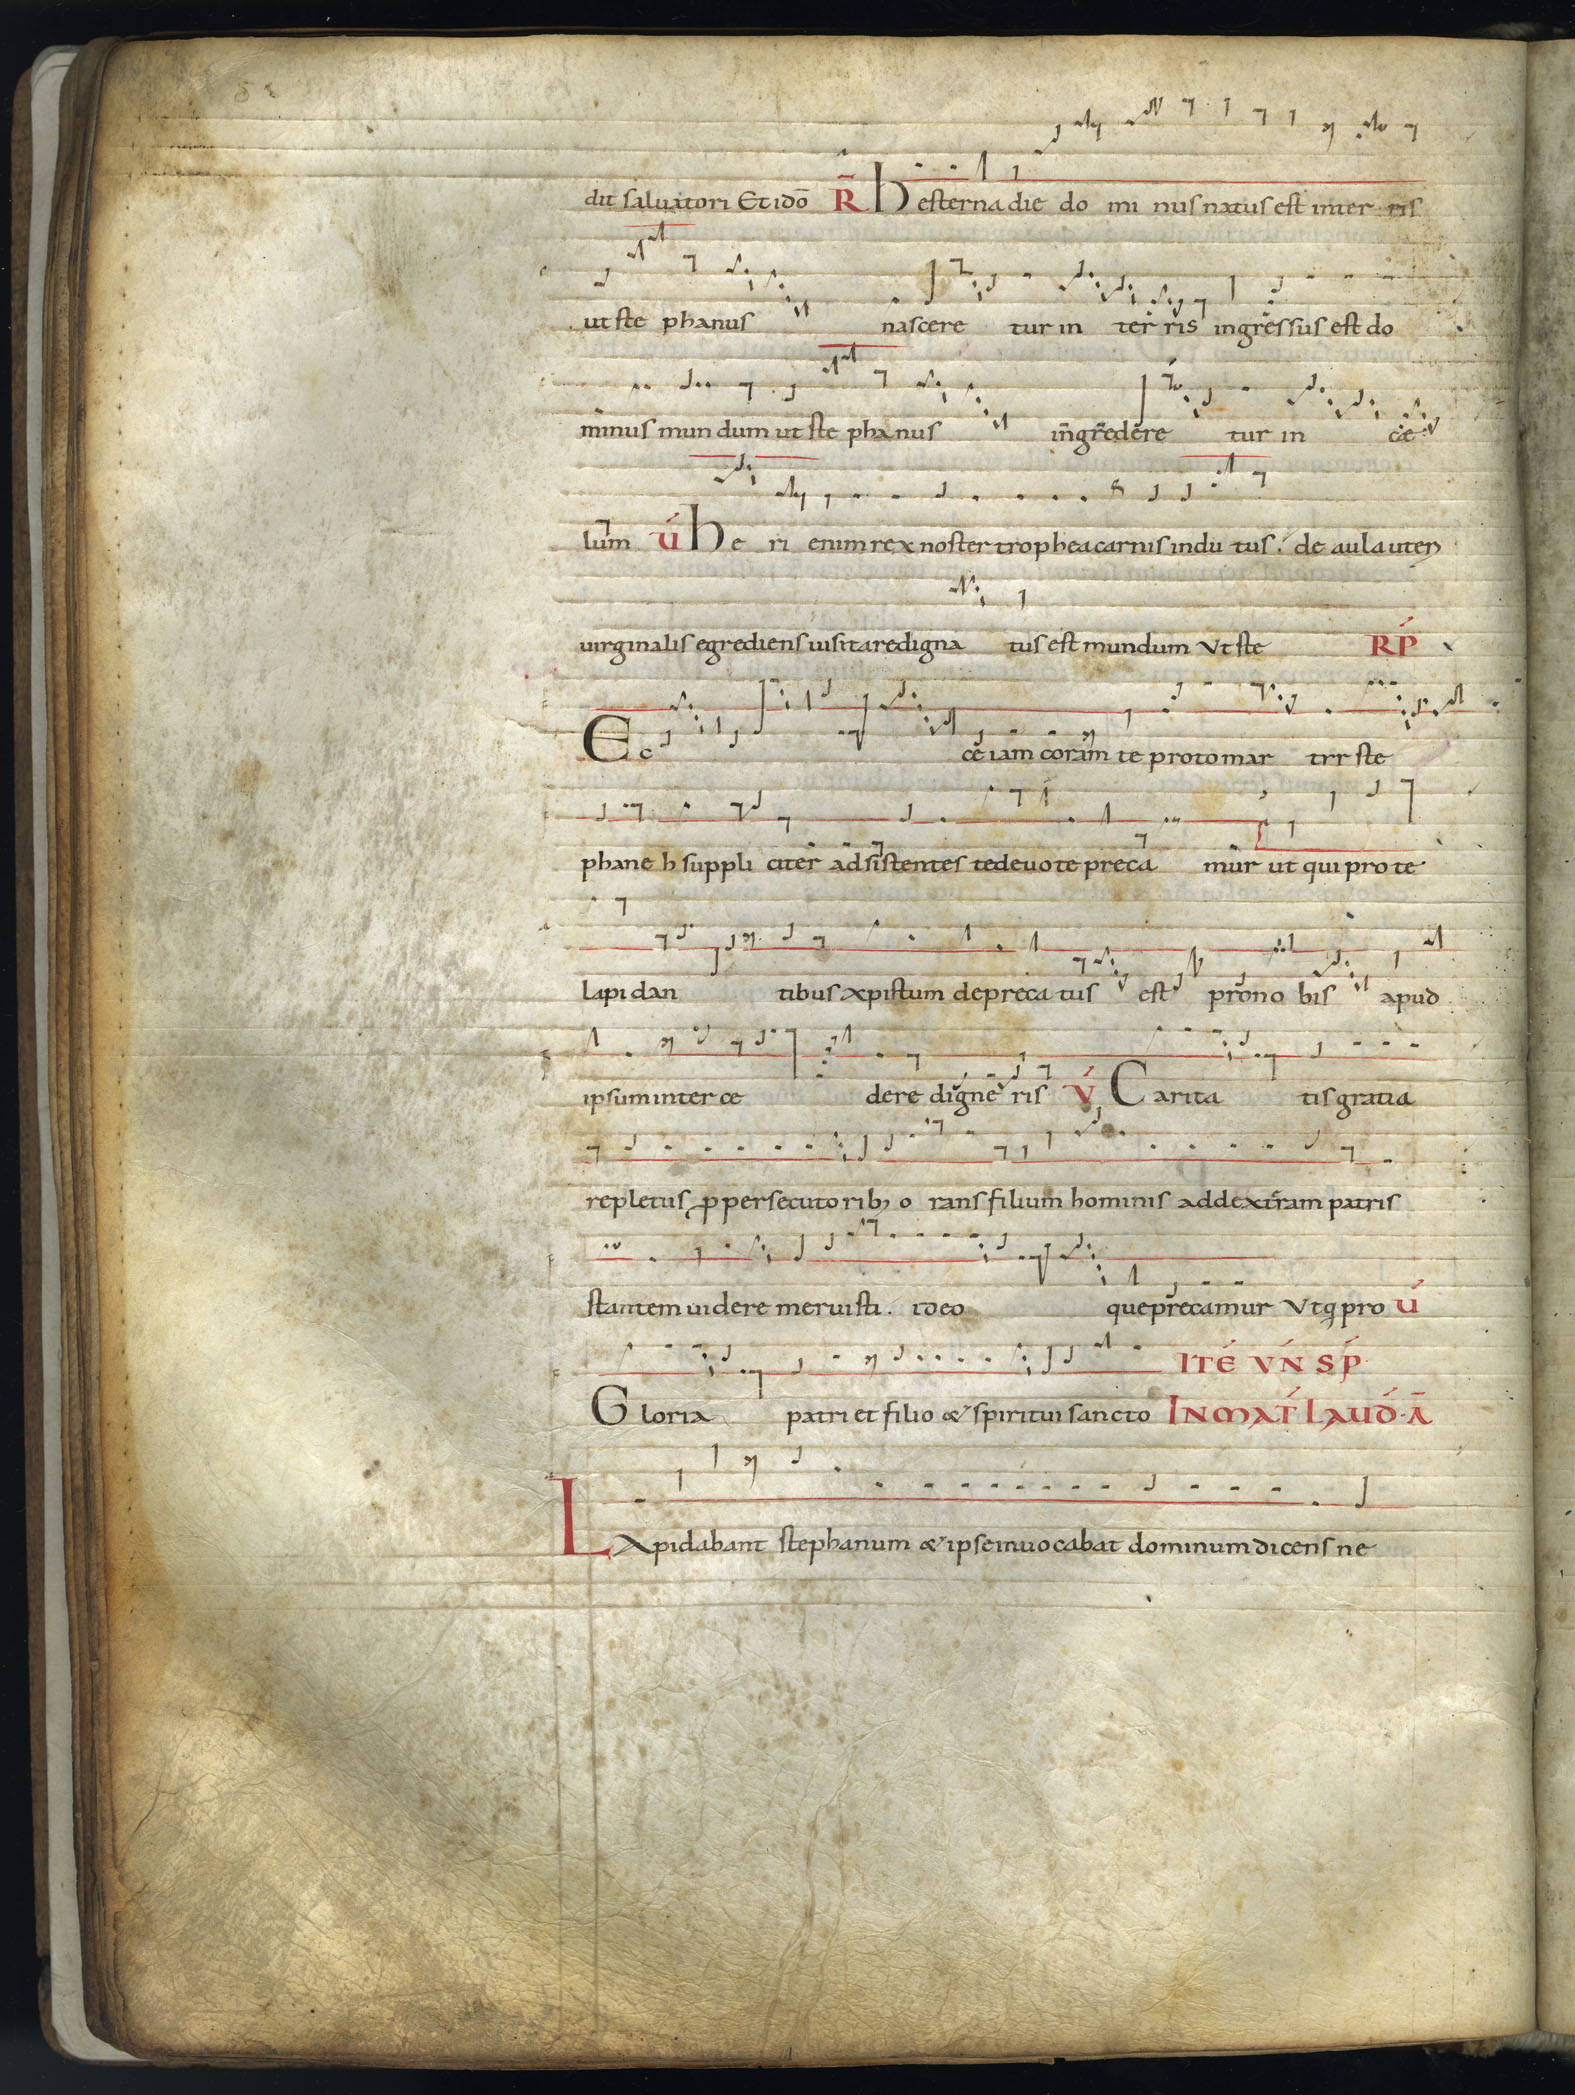 dit saluatori Et idō R̄ hesterna die dominus natus est in terris
ut stephanus nasceretur in terris ingressus est do
minus mundum ut stephanus ingrederetur in cæ
lum V́ heri enim rex noster trophea carnis indutus. de aula uteri
uirginalis egrediens uisitare dignatus est mundum Vt ste RṔ
Ecce iam coram te protomartyr ste
phane h suppliciter adsistentes te deuote precamur ut qui pro te
lapidantibus xpistum deprecatus est pro nobis apud
ipsum intercedere digneris V́ Caritatis gratia
repletus p persecutorib; orans filium hominis ad dextram patris
stantem uidere meruisti. ideoque precamur Vt q pro V́
ITÉ VŃ SṔ
Gloria patri et filio & spiritui sancto IN MAT́ LAUD́. Ā
Lapidabant stephanum & ipse inuocabat dominum dicens ne